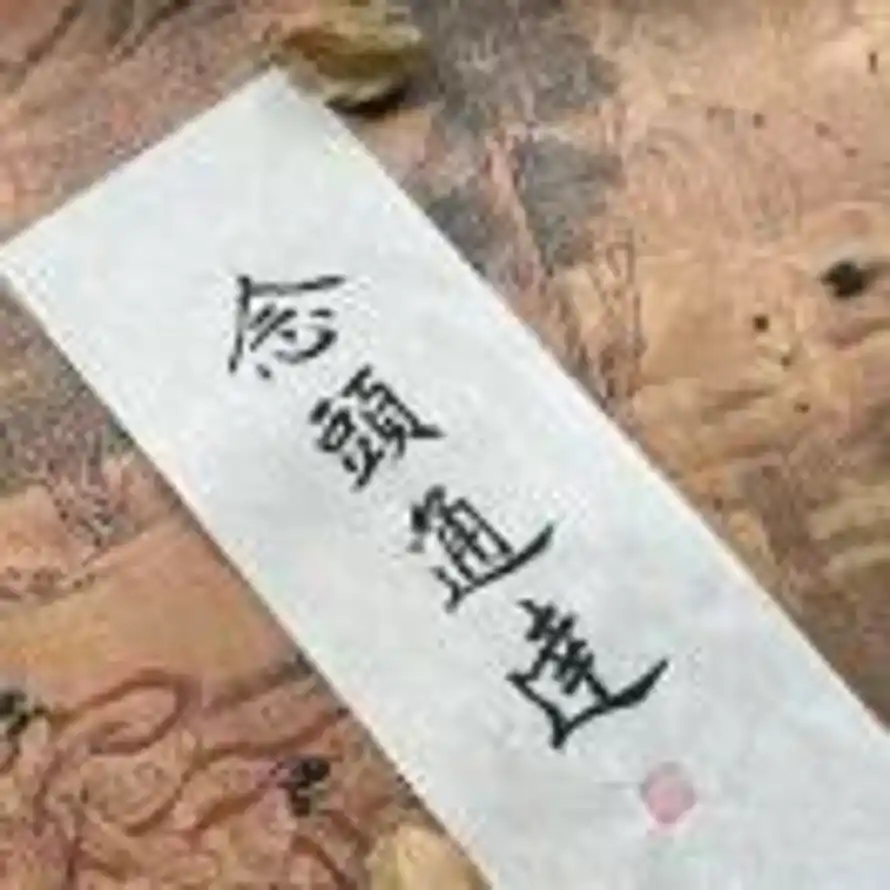 念頭通達